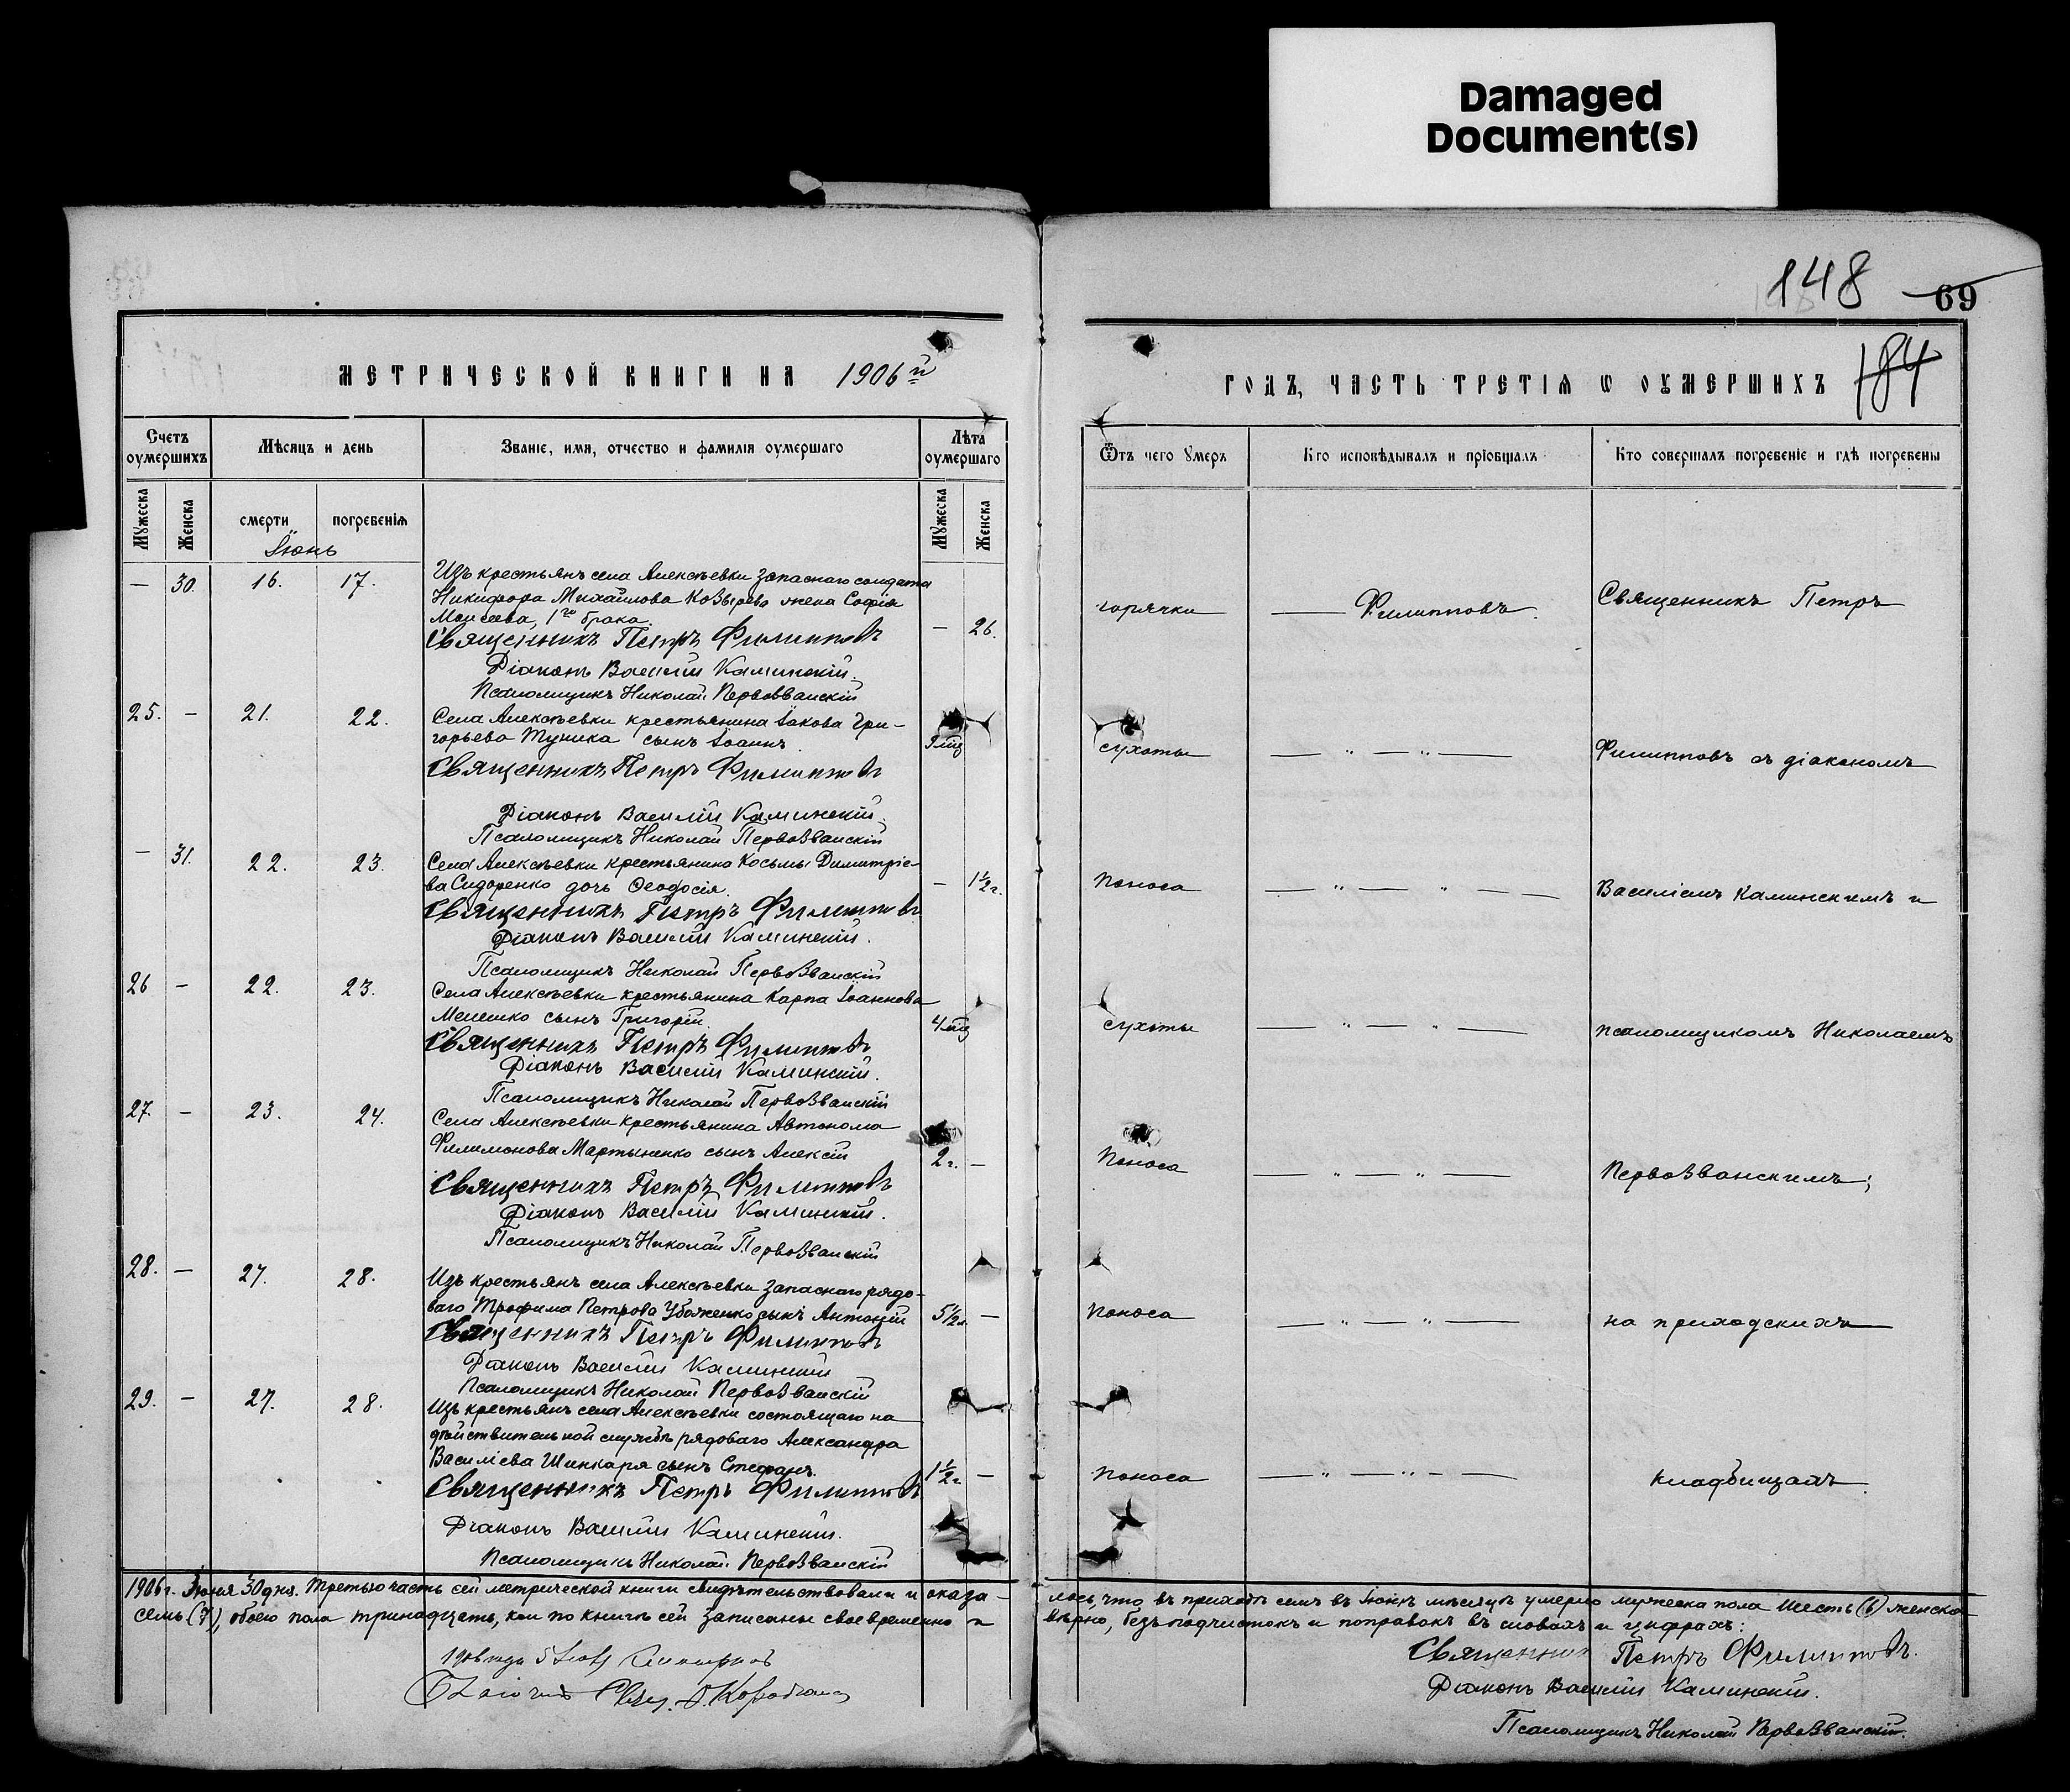 Damaged
Document(s)
148
69
184
МЕТРИЧЕСКОЙ КНИГИ НА 1906й
Счетъ оумершихъ
Мѣсяцъ и день
Званіе, имя, отчество и фамилія оумершаго
Лѣта оумершаго
Мужеска
Женска
смерти
погребенія
Мужеска
Женска
Іюнь
— 30. 16. 17.
Изъ крестьянъ села Алексѣевки запаснаго солдата
Никифора Михайлова Козырева жена Софія
Моисеева, 1го брака.
— 26.
Священникъ Петръ Филипповъ
Діаконъ Василій Каминскій.
Псаломщикъ Николай Первозванскій
25. — 21. 22.
Села Алексѣевки крестьянина Іакова Гри-
горьева Тупика сынъ Іоаннъ.
9 мц
Священникъ Петръ Филипповъ
Діаконъ Василій Каминскій.
Псаломщикъ Николай Первозванскій
— 31. 22. 23.
Села Алексѣевки крестьянина Косьмы Димитріе-
ва Сидоренко дочь Ѳеодосія.
— 1½ г.
Священникъ Петръ Филипповъ
Діаконъ Василій Каминскій.
Псаломщикъ Николай Первозванскій
26 — 22. 23.
Села Алексѣевки крестьянина Карпа Іоаннова
Мелешко сынъ Григорій.
4 мц
Священникъ Петръ Филипповъ
Діаконъ Василій Каминскій.
Псаломщикъ Николай Первозванскій
27. — 23. 24.
Села Алексѣевки крестьянина Автонома
Филимонова Мартыненко сынъ Алексій
2 г. —
Священникъ Петръ Филипповъ
Діаконъ Василій Каминскій.
Псаломщикъ Николай Первозванскій
28. — 27. 28.
Изъ крестьянъ села Алексѣевки запаснаго рядо-
ваго Трофима Петрова Убоженко сынъ Антоній
5½ л. —
Священникъ Петръ Филипповъ
Діаконъ Василій Каминскій
Псаломщикъ Николай Первозванскій
29. — 27. 28.
Изъ крестьянъ села Алексѣевки состоящаго на
дѣйствительной службѣ рядоваго Александра
Василіева Шинкаря сынъ Стефанъ.
1½ г —
Священникъ Петръ Филипповъ
Діаконъ Василій Каминскій.
Псаломщикъ Николай Первозванскій
1906 г. Іюня 30 дня. Третью часть сей метрической книги свидѣтельствовали и оказа-
семь (7), обоего пола тринадцать, кои по книгѣ сей записаны своевременно и
1906 года 5
ГОДЪ, ЧАСТЬ ТРЕТІЯ Ѡ ОУМЕРШИХЪ
Ѿтъ чего умеръ
Кто исповѣдывалъ и пріобщалъ
Кто совершалъ погребеніе и гдѣ погребены
горячки — Филипповъ. Священникъ Петръ
сухоты — " — " — Филипповъ съ діакономъ
Поноса — " — " — — Василіемъ Каминскимъ и
сухоты — " — " — псаломщикомъ Николаемъ
Поноса — " — " — Первозванскимъ;
Поноса — " — " — на приходскихъ
Поноса — " — " — — кладбищахъ.
лось, что въ приходѣ семъ въ Іюнѣ мѣсяцѣ умерло мужеска пола шесть (6) женска
вѣрно, безъ подчистокъ и поправокъ въ словахъ и цифрахъ:
Священникъ Петръ Филипповъ.
Діаконъ Василій Каминскій.
Псаломщикъ Николай Первозванскій.